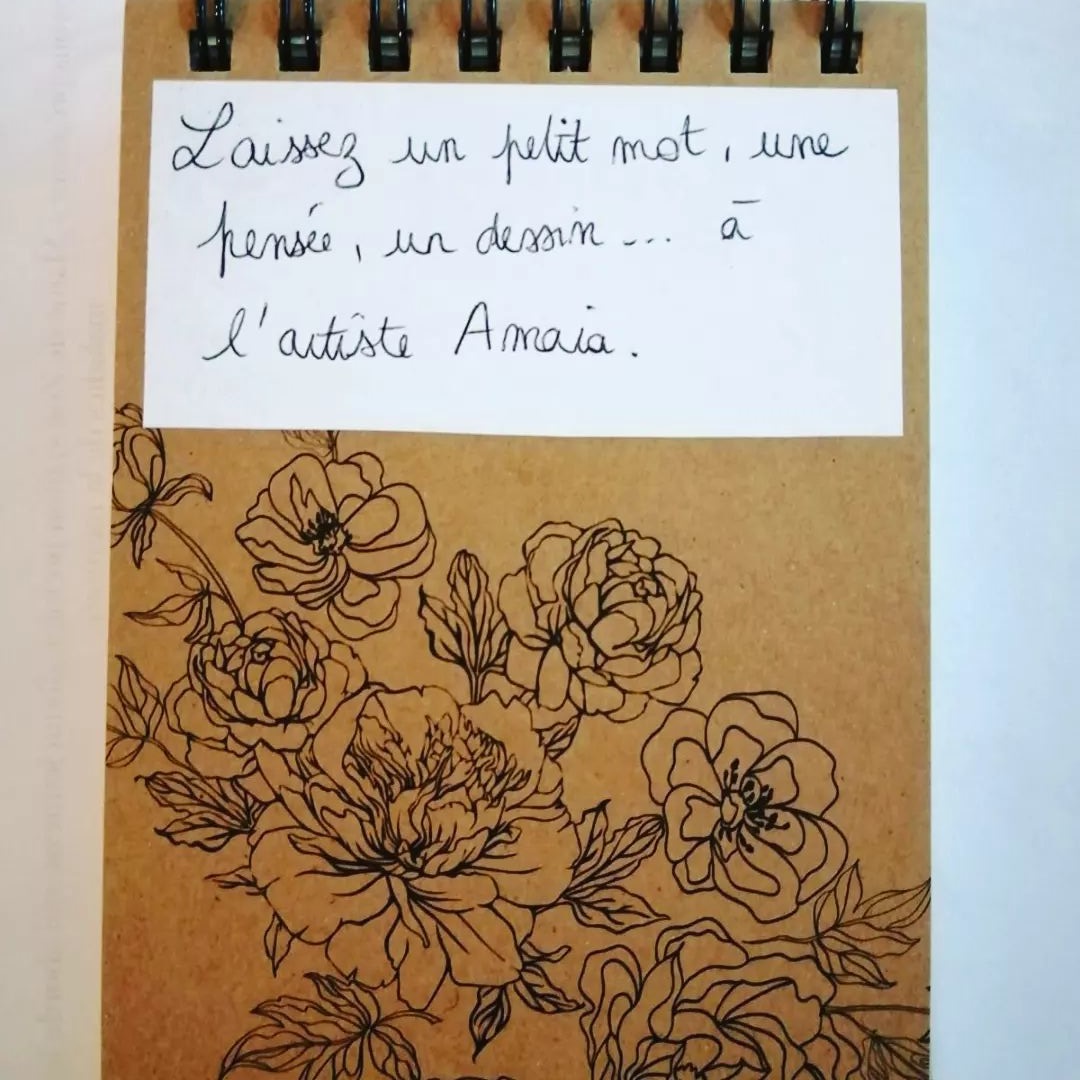 Laissez un petit mot, une
pensée, un dessin ... à
l'artiste Amaia.